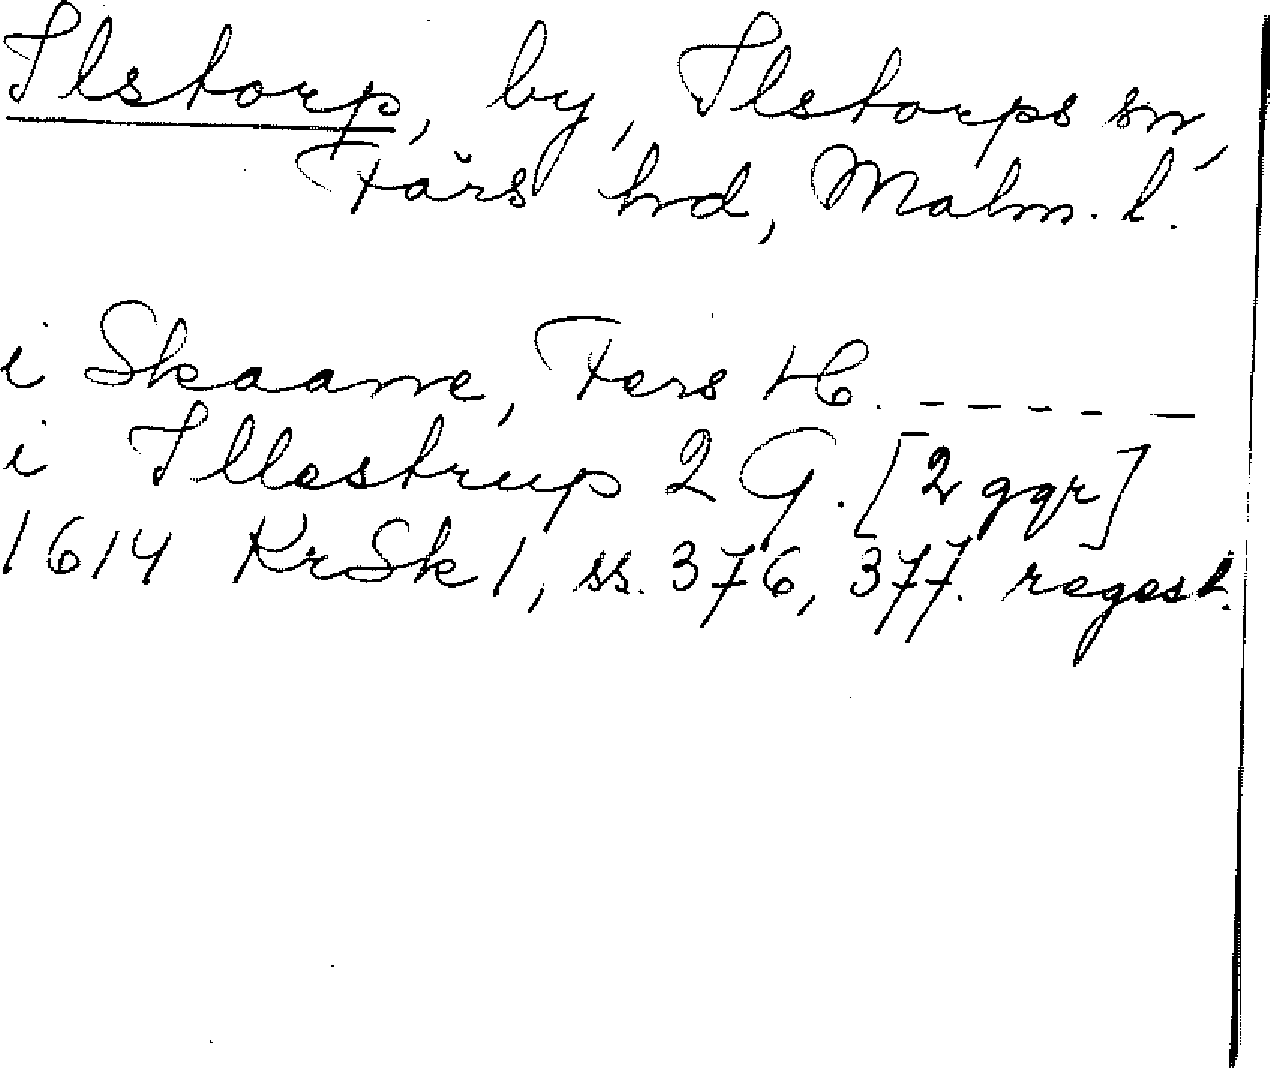 Ilstorp, by, Ilstorps sn,
Färs hrd, Malm. l.
i Skaane, Fers H. - - - - -
i Illestrup 2 G. [2 ggr]
1614 KrSk 1, ss. 376, 377. regest.